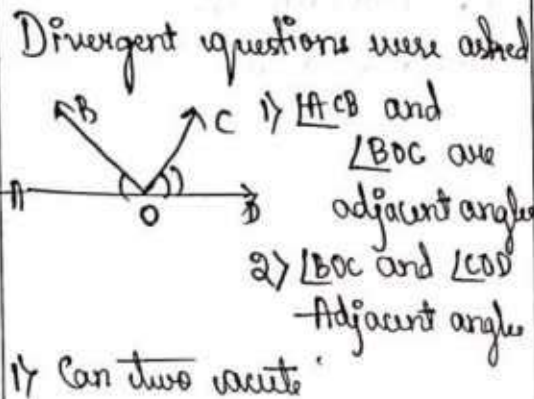 Divergent questions were asked
B
C
1) ∠ACB and
∠BOC are
A
O
D
adjacent angles
2) ∠BOC and ∠COD
-Adjacent angles
1) Can two acute